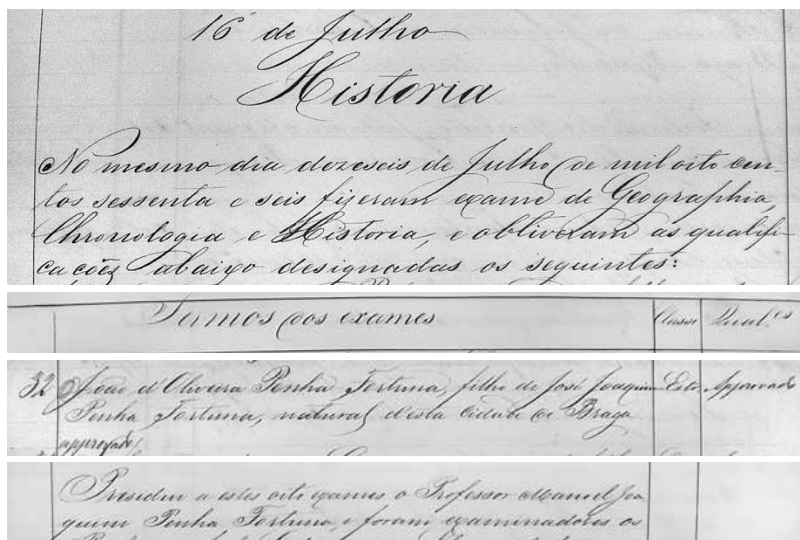 16 de Julho
Historia
No mesmo dia dezeseis de Julho de mil oito cen-
tos sessenta e seis fizeram exame de Geographia,
Chronologia e Historia, e obtiveram as qualifi-
cações abaixo designadas os seguintes:
Termos dos exames Classes Qual.es
52 João d'Oliveira Penha Fortuna, filho de José Joaquim Ext. Approvado
Penha Fortuna, natural d'esta Cidade de Braga
approvado
Presidiu a estes oito exames o Professor Manoel Joa
quim Penha Fortuna, e foram examinadores os